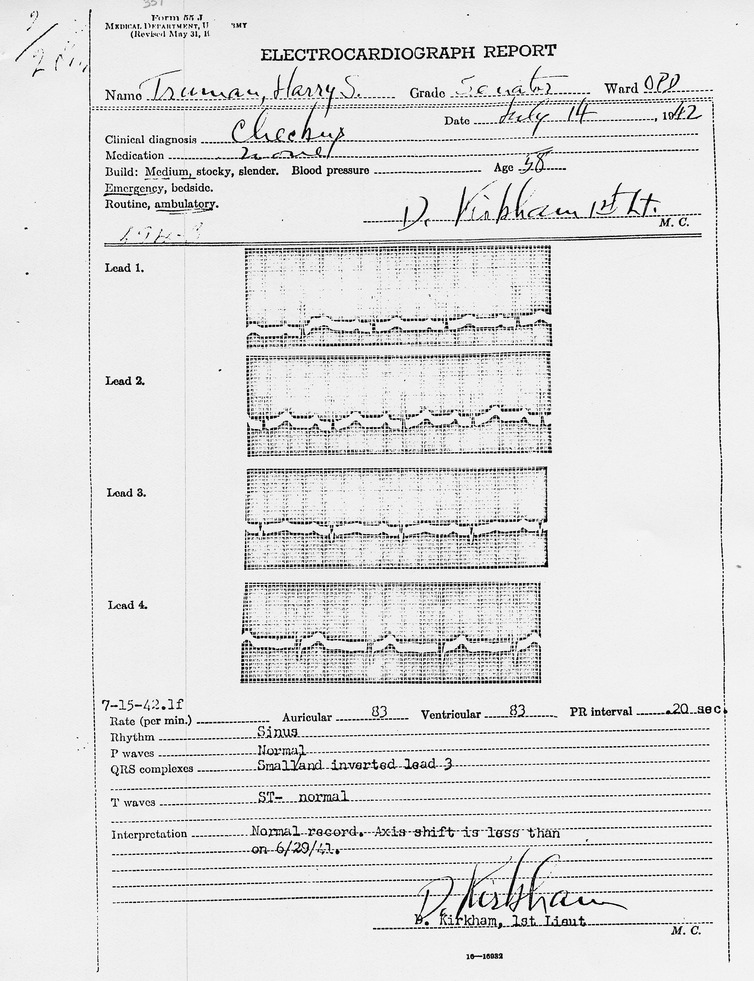 351
Form 55 J
MEDICAL DEPARTMENT, U RMY
(Revised May 31, 1
ELECTROCARDIOGRAPH REPORT
Name Truman, Harry S. Grade Senator Ward OPD
Date July 14, 1942
Clinical diagnosis Checkup
Medication none
Build: Medium, stocky, slender. Blood pressure Age 58
Emergency, bedside.
Routine, ambulatory.
D. Kirkham 1st Lt.
M. C.
Lead 1.
Lead 2.
Lead 3.
Lead 4.
7-15-42.lf
Rate (per min.) Auricular 83 Ventricular 83 PR interval .20 sec.
Rhythm Sinus
P waves Normal
QRS complexes Small/and inverted lead 3
T waves ST- normal
Interpretation Normal record. Axis shift is less than
on 6/29/41.
D. Kirkham
D. Kirkham, 1st Lieut
M. C.
16—16932